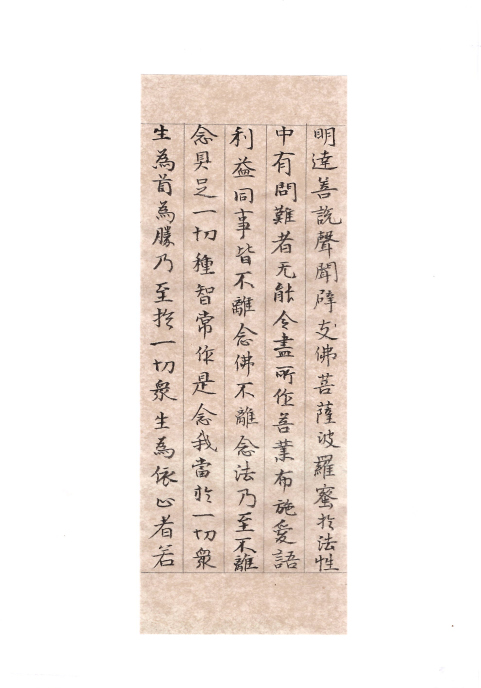 明達善說聲聞辟支佛菩薩波羅蜜於法性
中有問難者无能令盡所作善業布施愛語
利益同事皆不離念佛不離念法乃至不離
念具足一切種智常作是念我當於一切眾
生為首為勝乃至於一切眾生為依止者若